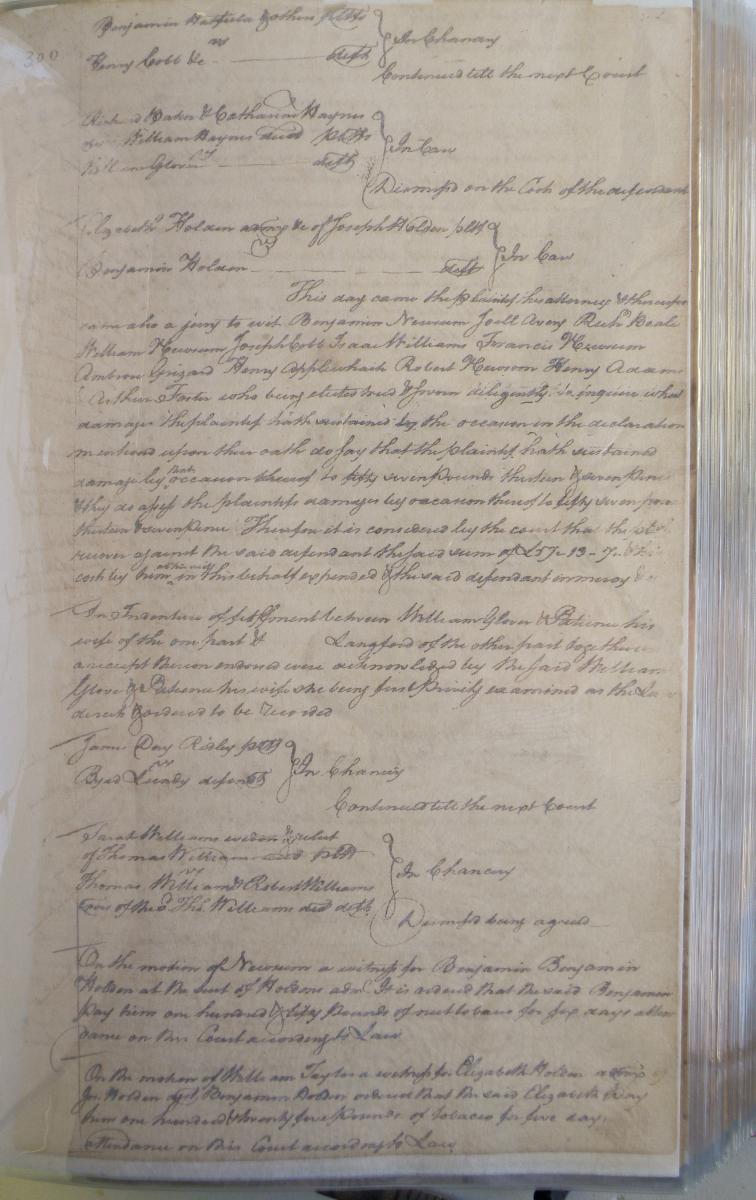 300
Benjamin Hatfield & others pltfs
vs In Chancery
Henry Cobb &c deft
Continued till the next Court
Richard Baker & Catharine Haynes
William Haynes decd pltfs
vs In Case
William Glover deft
Dismissd on the Costs of the defendant
Elizabeth Holden admx &c of Joseph Holden pltf
vs In Case
Benjamin Holden deft
This day came the plaintif his attorney & thereupon
came also a jury to wit Benjamin Newsum Joell Avery Richd Beale
William Newsum Joseph Cobb Isaac Williams Francis Newsum
Ambrose Grizard Henry Applewhaite Robert Newsom Henry Adams
& Arthur Foster who being elected tried & sworn diligently to inquire what
damages the plaintif hath sustained by the occasion in the declaration
mentioned upon their oath do say that the plaintif hath sustained
damage by that occasion thereof to fifty seven Pounds thirteen & seven Pence
& they do assess the plaintifs damages by occasion thereof to fifty seven poun
thirteen & seven Pence Therefore it is considered by the court that the plt
recover against the said defendant the said sum of £57-13-7. & his
costs by him in this behalf expended & the said defendant in mercy &c
An Indenture of feffment between William Glover & Patience his
wife of the one part & Langford of the other part together
a receipt thereon endorsed were acknowledged by the said William
Glover & Patience his wife she being first Privily examined as the Law
directs & ordered to be recorded
James Day Ridley pltf
vs In Chancery
Byrd Lundy defendt
Continued till the next Court
Sarah Williams widow & relict
of Thomas Williams decd pltf
vs In Chancery
Thomas Williams & Robert Williams
Exors of the sd Thos. Williams decd defts
Dismissd being agreed
On the motion of Newsum a witness for Benjamin Benjamin
Holden at the suit of Holdens adm. It is ordered that the said Benjamin
Pay him one hundred & fifty Pounds of nett tobacco for six days atten
dance on this Court according to Law
On the motion of William Taylor a witness for Elizabeth Holden admx of
Jos Holden agst Benjamin Holden ordered that the said Elizabeth Pay
him one hundred & twenty five Pounds of tobacco for five days
attendance on this Court according to Law